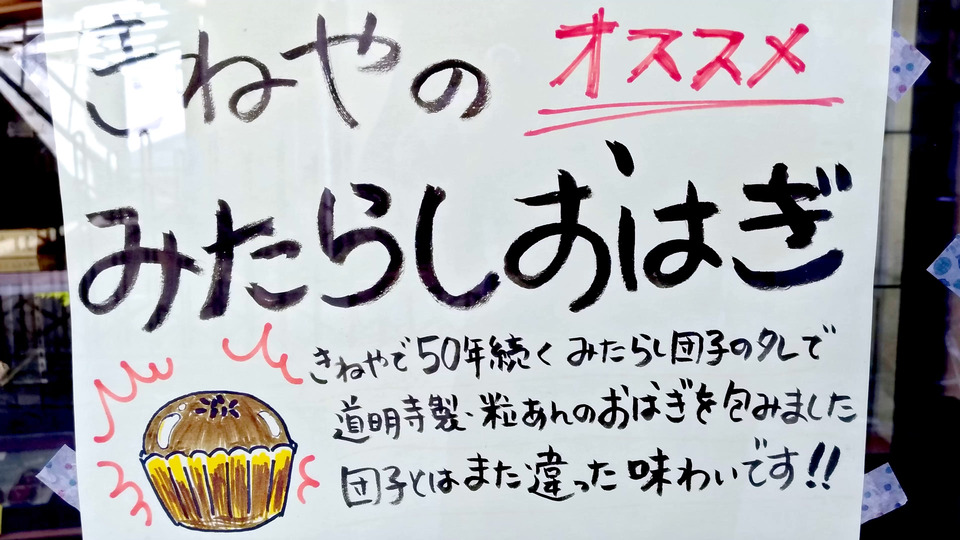 きねやの オススメ
みたらしおはぎ
きねやで50年続くみたらし団子のタレで
道明寺製・粒あんのおはぎを包みました
団子とはまた違った味わいです!!